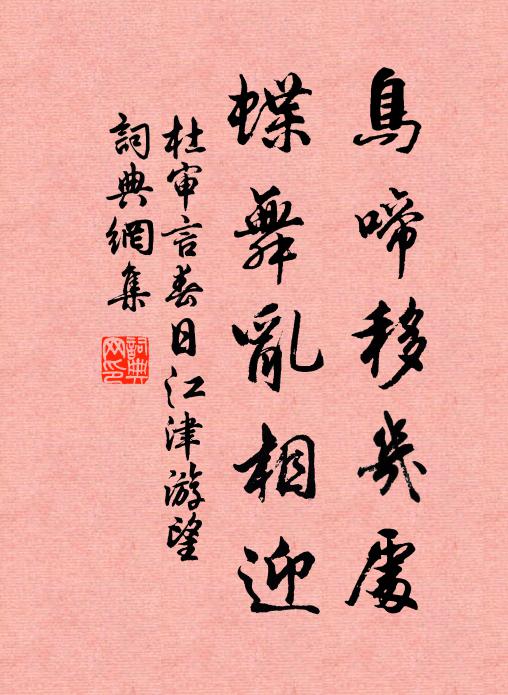 鳥啼移幾處
蝶舞亂相迎
杜审言春日江津游望
詞典網集
詞典網印